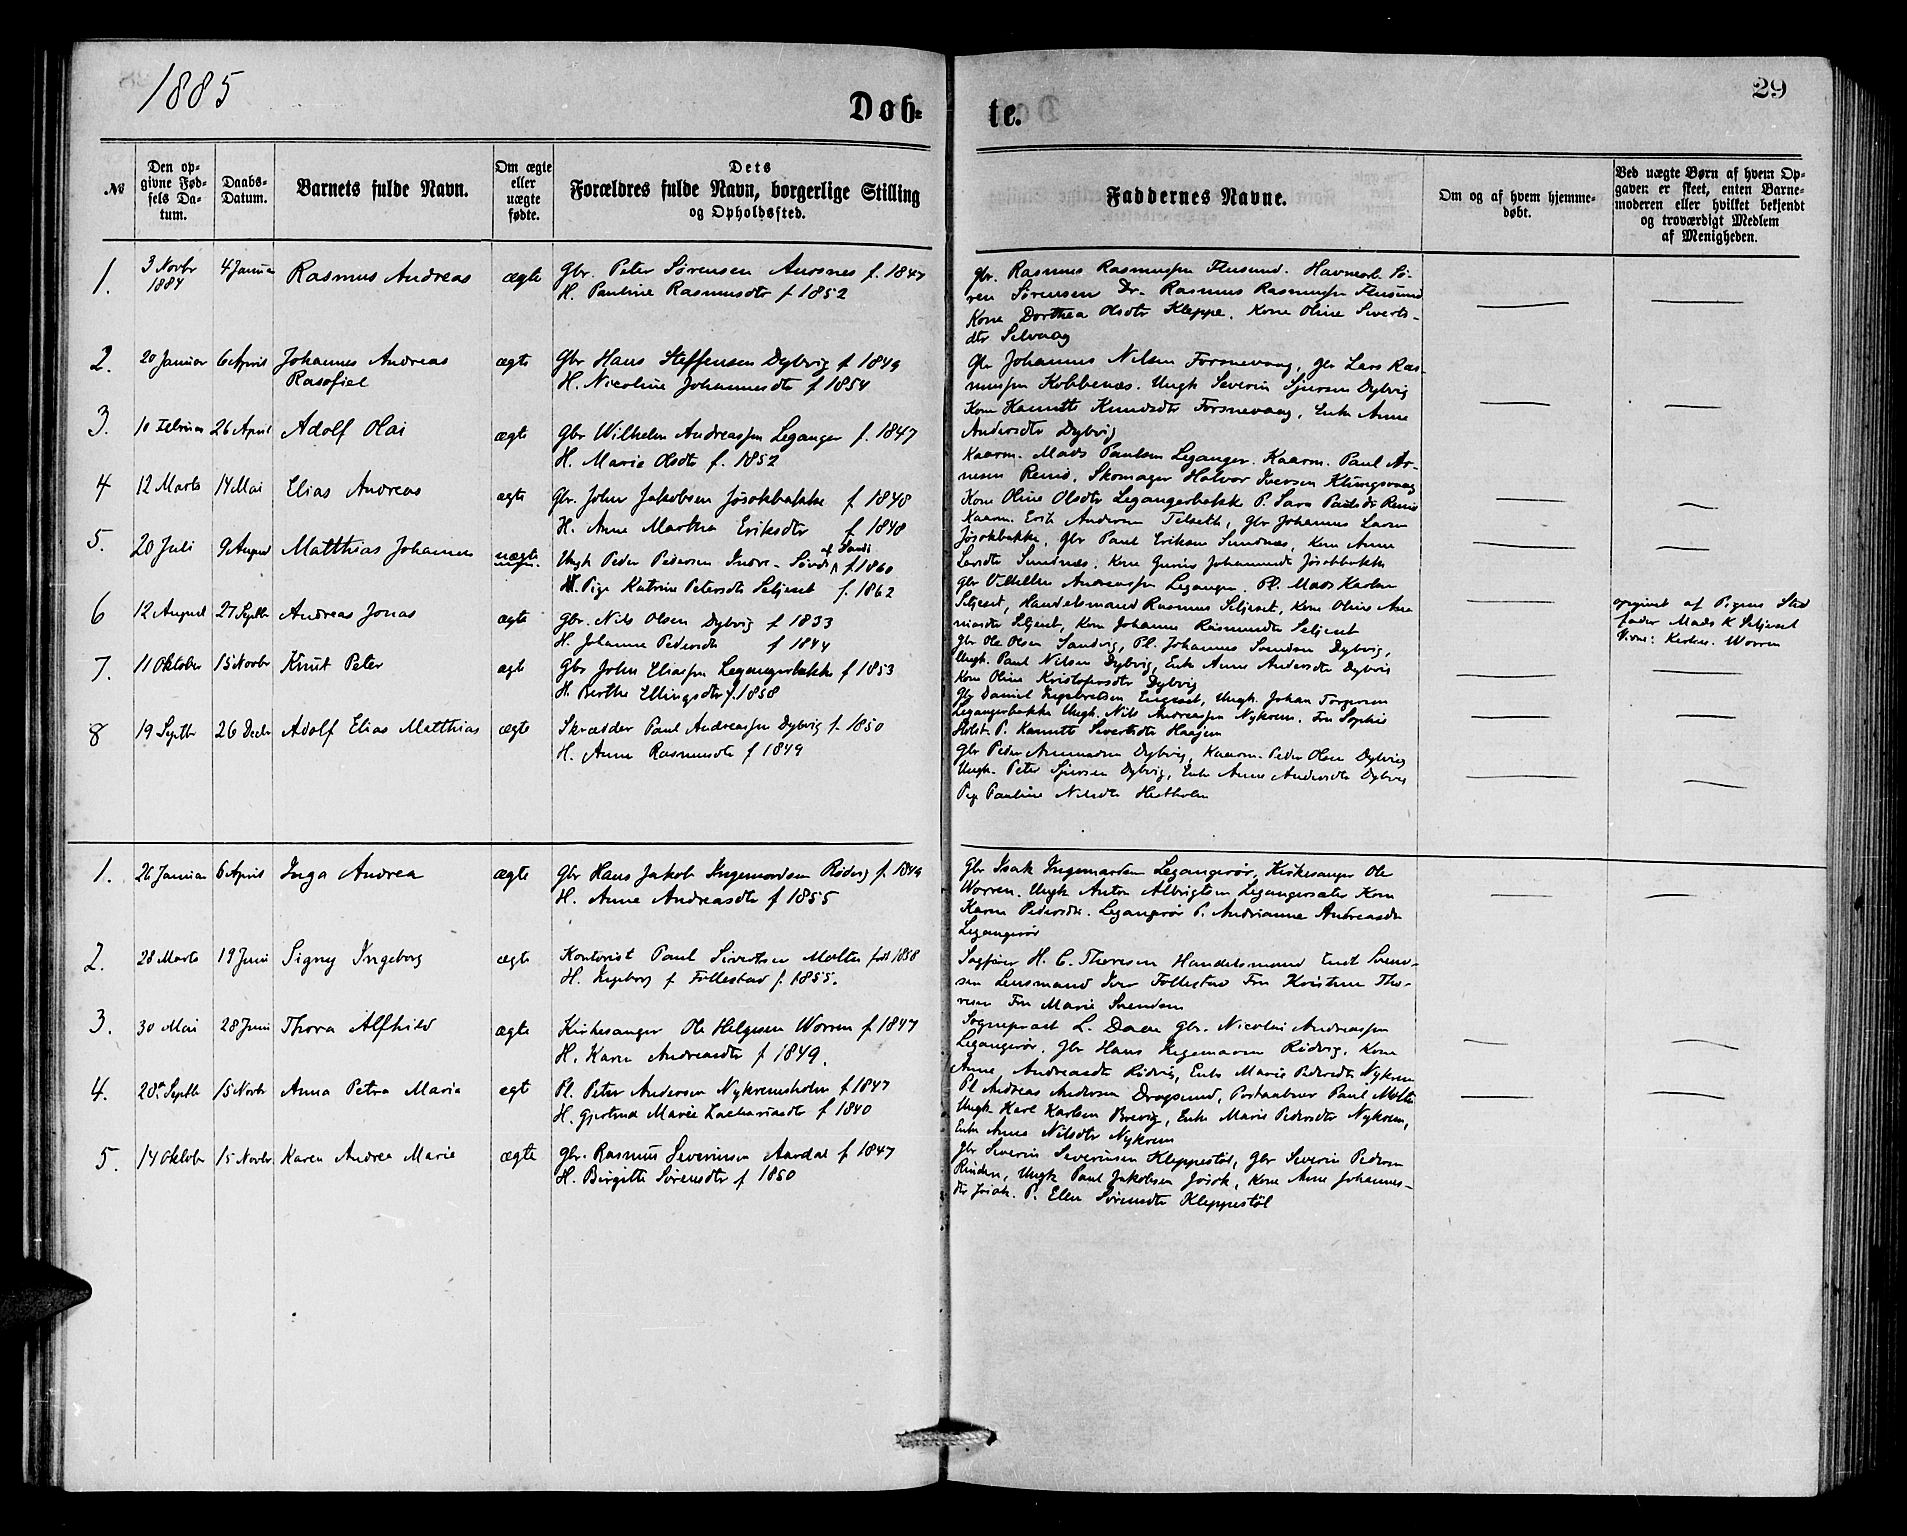 1885
29
Døb-
te.
№
Den op-
givne Fød-
sels Da-
tum.
Daabs-
Datum.
Barnets fulde Navn.
Om ægte
eller
uægte
fødte.
Dets
Forældres fulde Navn, borgerlige Stilling
og Opholdssted.
Faddernes Navne.
Om og af hvem hjemme-
døbt.
Ved uægte Børn af hvem Op-
gaven er skeet, enten Barne-
moderen eller hvilket bekjendt
og troværdigt Medlem
af Menigheden.
1.
3 Novbr
1884
4 Januar
Rasmus Andreas
ægte
Gbr. Peter Sørensen Aursnes f. 1847
H. Pauline Rasmusdtr f 1852
Gbr. Rasmus Rasmussen Flusund. Havnearb. Sø-
ren Sørensen Dr. Rasmus Rasmussen Flusund
Kone Dorthea Olsdtr Kleppe. Kone Oline Siverts-
dtr Selvaag
2.
20 Januar
6 April
Johannes Andreas
Rasofiel
ægte
Gbr Hans Steffensen Dybvig f 1849
H. Nicoline Johannesdtr f 1854
Gbr Johannes Nilsen Forsnevaag, Gbr Lars Ras-
mussen Kobbenæs. Ungk Severin Sjursen Dybvig
Kone Hannette Knudsdtr Forsnevaag, Enke Anne
Andersdtr Dybvig
3.
10 Februar
26 April
Adolf Olai
ægte
Gbr Wilhelm Andreassen Leganger f. 1847
H. Marie Olsdtr f. 1852
Kaarm. Mads Paulsen Leganger. Kaarm. Paul Ar-
nesen Remø. Skomager Halvor Iversen Klungsvaag
Kone Oline Olsdtr Legangerbakk P. Sara Paulsdtr Remø
4
12 Marts
14 Mai
Elias Andreas
ægte
Gbr. John Jakobsen Jøsokbakke f 1848
H. Anne Martha Eriksdtr f 1848
Kaarm. Erik Andersen Tilseth, Gbr Johannes Larsen
Jøsokbakke, Gbr Paul Eriksen Sundnæs, Kone Anne
Larsdtr Sundnæs. Kone Gurine Johannesdtr Jøsokbakke
5.
20 Juli
9 August
Matthias Johannes
uægte
Ungk Peder Pedersen Indre-
f. 1860
Pige Katrine Petersdtr Seljeset f. 1862
Gbr Vilhelm Andreassen Leganger. Pl. Mads Karlsen
Seljeset, Handelsmand Rasmus Seljeset, Kone Oline Ane
Seljeset, Kone Johanne Rasmusdtr Seljeset
opgivet af Pigens Sted
fader Mads K Seljeset
Vidne: Kirkes. Worren
6
12 August
27 Septbr
Andreas Jonas
ægte
Gbr. Nils Olsen Dybvig f 1833
H. Johanne Pedersdtr f 1844
Gbr Ole Olsen Sandvig, Pl. Johannes Svendsen Dybvig,
Ungk. Paul Nilsen Dybvig, Enke Anne Andersdtr Dybvig
Kone Oline Kristofersdtr Dybvig
7.
11 Oktober
15 Novbr
Knut Peter
ægt
Gbr John Eliassen Legangerbakke f 1853
H. Berthe Ellingsdtr f. 1858
Gbr Daniel Ingebretsen Engeset, Ungk. Johan Torgersen
Legangerbakke Ungk. Nils Andreassen Nykrem. Fru Sophie
Holst. P. Hannette Sivertsdtr Haajem
8
19 Septbr
26 Decbr
Adolf Elias Matthias
ægte
Skrædder Paul Andreassen Dybvig f. 1850
H. Anne Rasmusdtr f 1849
Gbr Peder Dybvig, Kaarm. Peder Olsen Dybvig
Ungk. Peter Sjursen Dybvig, Enke Anne Andersdtr Dybvig
Pige Pauline Nilsdtr Hestholm
1.
26 Januar
6 April
Inga Andrea
ægte
Gbr Hans Jakob Ingemordsen Rødvig f. 1849
H. Anne Andreasdtr f 1855
Gbr Isak Ingemordsen Legangerør, Kirkesanger Ole
Worren. Ungk Anton Albrigtsen Legangersæter Kone
Karen Pedersdtr. Legangerør P. Andrianna Andreasdtr
Legangerør
2.
28 Marts
19 Juni
Signy Ingeborg
ægte
Kontorist Paul Sivertsen Molte født 1858
H. Ingeborg f Follestad f. 1855.
Sagfører H. C. Thoresen Handelsmand Svend-
sen Lensmand Iver Follestad Fru Kristine Tho-
resen Fru Marie Svendsen
3.
30 Mai
28 Juni
Thora Alfhild
ægte
Kirkesanger Ole Helgesen Worren f 1847
H. Karen Andreasdtr f 1849.
Sogneprest L. Daae Gbr. Nicolai Andreassen
Legangerør. Gbr Hans Ingemarsen Rødvig. Kone
Anne Andreasdtr Rødvig, Enke Marie Pedersdtr Nykrem
4.
20de Septbr
15 Novbr
Anna Petra Maria
egt
Pl. Peter Andersen Nykremsholm f 1847
H. Gjertrud Marie Zachariasdtr f 1840
Pl Andreas Andersen Dragsund, Postaabner Paul Molte
Ungk Karl Karlsen Brevig, Enke Marie Pedersdtr Nykrem,
Enke Anne Nilsdtr Nykrem
5.
14 Oktober
15 Novbr
Karen Andrea Marie
ægte
Gbr. Rasmus Severinsen Aardal f 1847
H. Birgitte Sørensdtr f 1850
Gbr Severin Severinsen Kleppestøl, Gbr Severin Pedersen
Rinden, Ungk Paul Jakobsen Jøsok, Kone Anne Johannes-
dtr Jøsok. P. Ellen Sørensdtr Kleppestøl